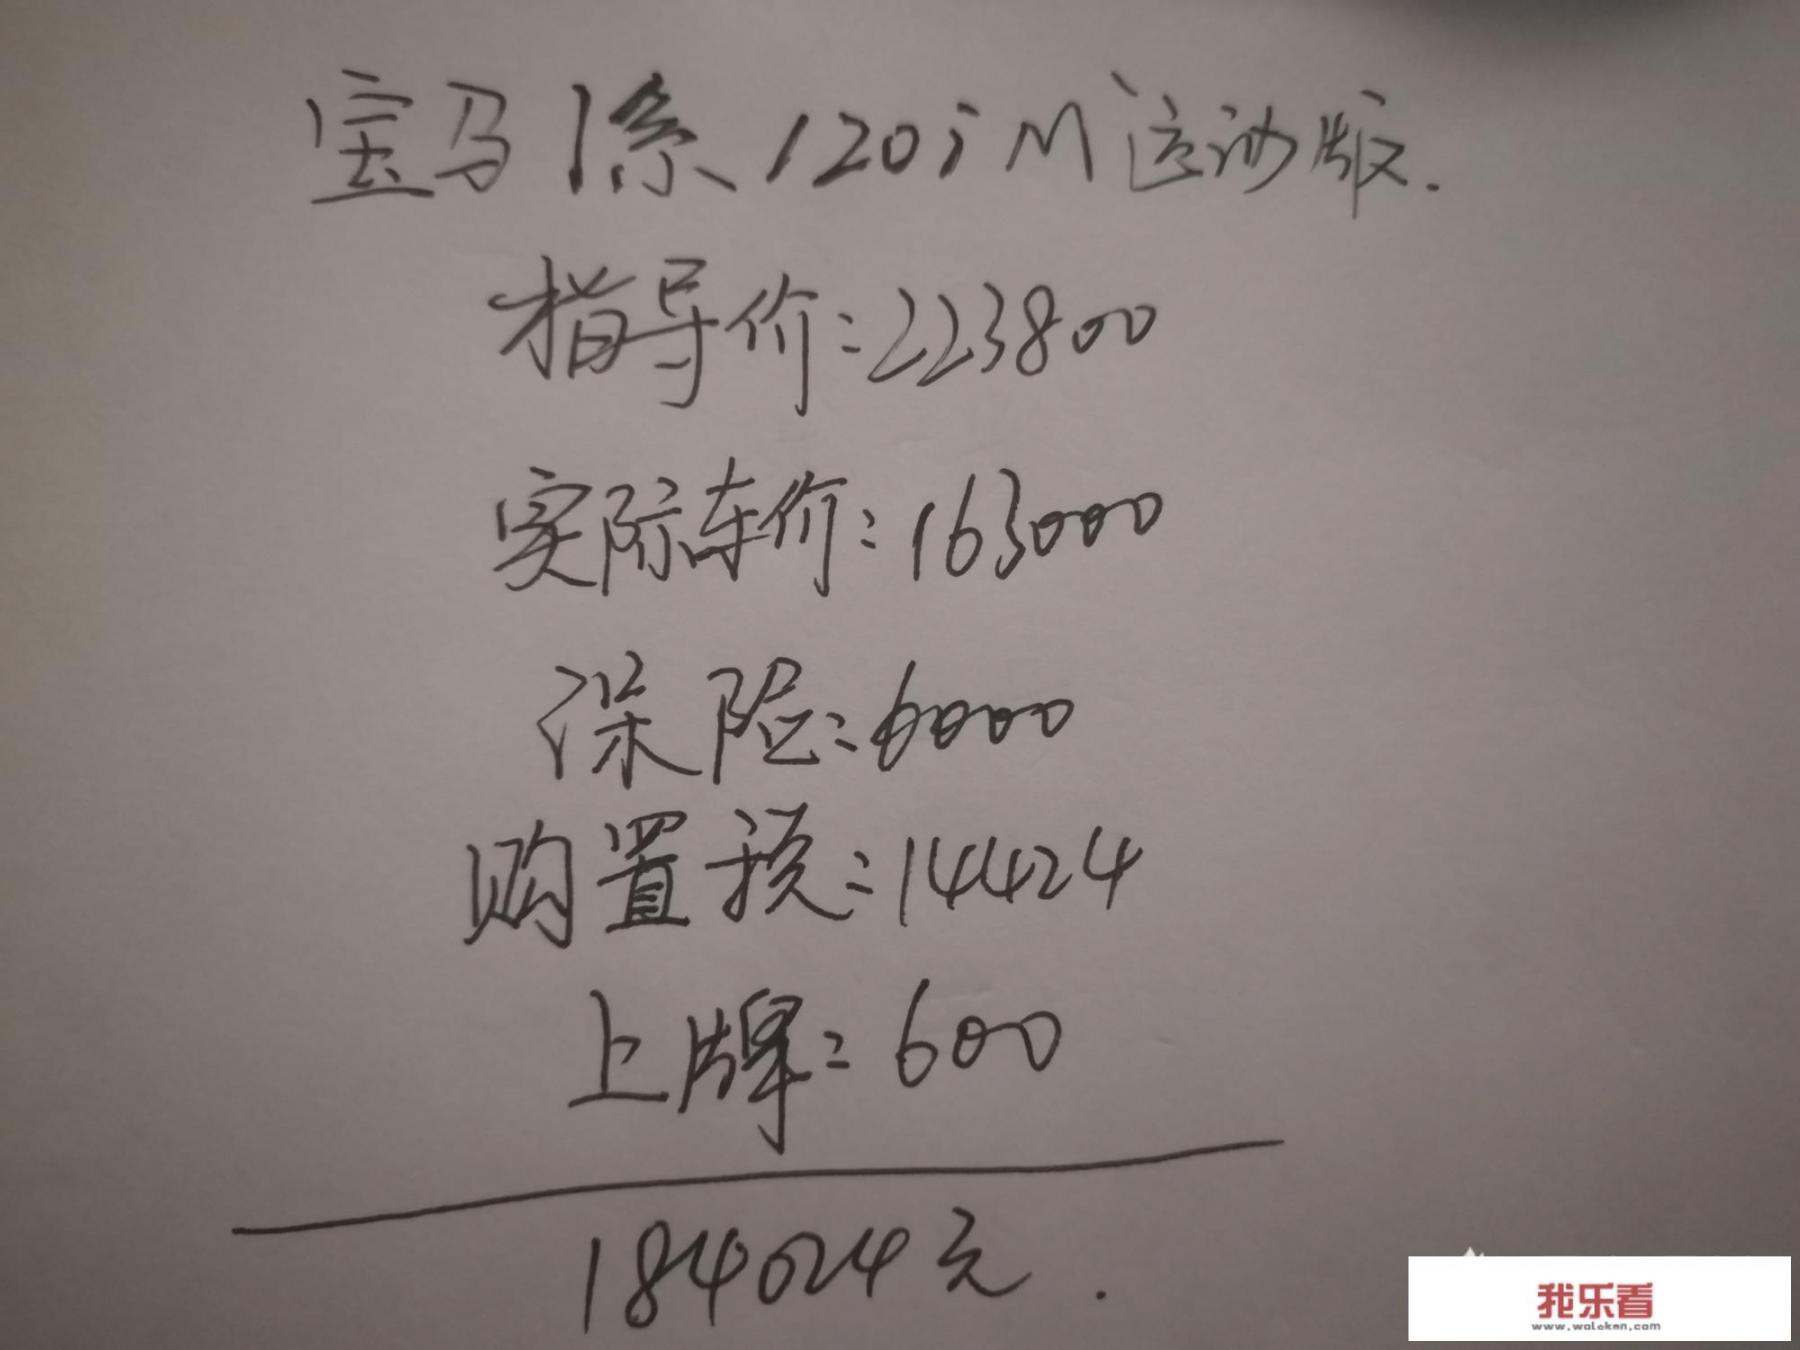 宝马1系120i M运动版.
指导价:223800
实际车价:163000
保险:6000
购置税:14424
上牌:600
184024元.
我乐看
www.woleken.com